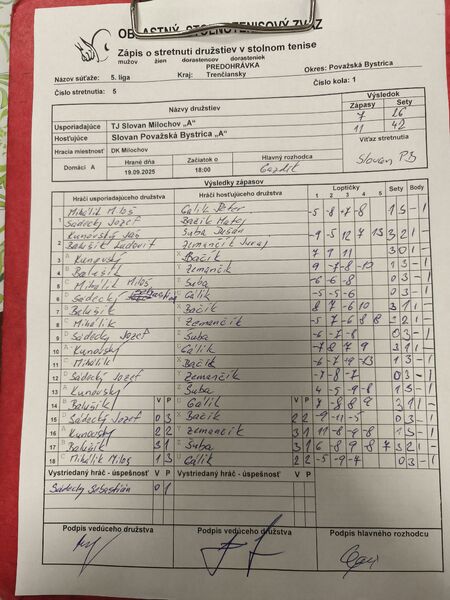 OBLASTNÝ STOLNOTENISOVÝ ZVÄZ
Zápis o stretnutí družstiev v stolnom tenise
mužov žien dorastencov dorasteniek
PREDOHRÁVKA
Názov súťaže: 5. liga Kraj: Trenčiansky Okres: Považská Bystrica
Číslo stretnutia: 5 Číslo kola: 1
Názvy družstiev Výsledok
Zápasy Sety
Usporiadajúce TJ Slovan Milochov „A" 7 26
Hosťujúce Slovan Považská Bystrica „A" 11 42
Hracia miestnosť DK Milochov Víťaz stretnutia
Domáci A Hrané dňa Začiatok o Hlavný rozhodca Slovan PB
19.09.2025 18:00 Gazdík
Výsledky zápasov
Hráči usporiadajúceho družstva Hráči hosťujúceho družstva Loptičky Sety Body
1 2 3 4 5
1 Mihálik Miloš Gálik Peter -5 -8 -7 -8
Sádecký Jozef Bačík Matej
2 Kunovský Ján Šuba Dušan
Balušík Ľudovít Zemančík Juraj
3 Kunovský Bačík 7 9 11 3 0 1 -
4 Balušík Zemančík
5 Mihálik Miloš Šuba -6 -6 -8 0 3 - 1
6 Sádecký Gálik -5 -5 -6 0 3 - 1
7 Balušík Bačík 8 7 -6 10 3 1 1 -
8 Mihálik Zemančík
9 Sádecký Jozef Šuba 0 3 - 1
10 Kunovský Gálik -7 8 7 9 3 1 1 -
11 Mihálik Bačík -6 7 -9 -13 1 3 - 1
12 Sádecký Jozef Zemančík -7 -8 -7 0 3 - 1
13 Kunovský Šuba 4 -5 -9 -8 1 3 - 1
14 Balušík V P Gálik V P
15 Sádecký Jozef 0 3 Bačík 2 2 0 3 - 1
16 Kunovský 2 2 Zemančík 3 1 1 3 - 1
17 Balušík 3 1 Šuba 3 1 6 -8 9 -8 7 3 2 1 -
18 Mihálik Miloš 1 3 Gálik 2 2 -5 -9 -4 0 3 - 1
Vystriedaný hráč - úspešnosť V P Vystriedaný hráč - úspešnosť V P
Sádecký Sebastián 0 1
Podpis vedúceho družstva Podpis vedúceho družstva Podpis hlavného rozhodcu